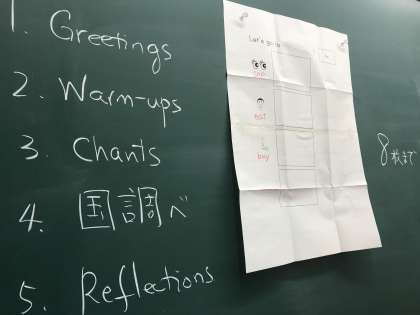 1. Greetings
2. Warm-ups
3. Chants
4. 国調べ
5. Reflections
Let's go to
see
eat
buy